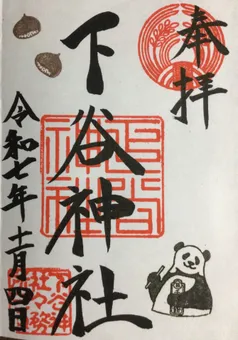 奉拝
下谷神社
令和七年十一月四日